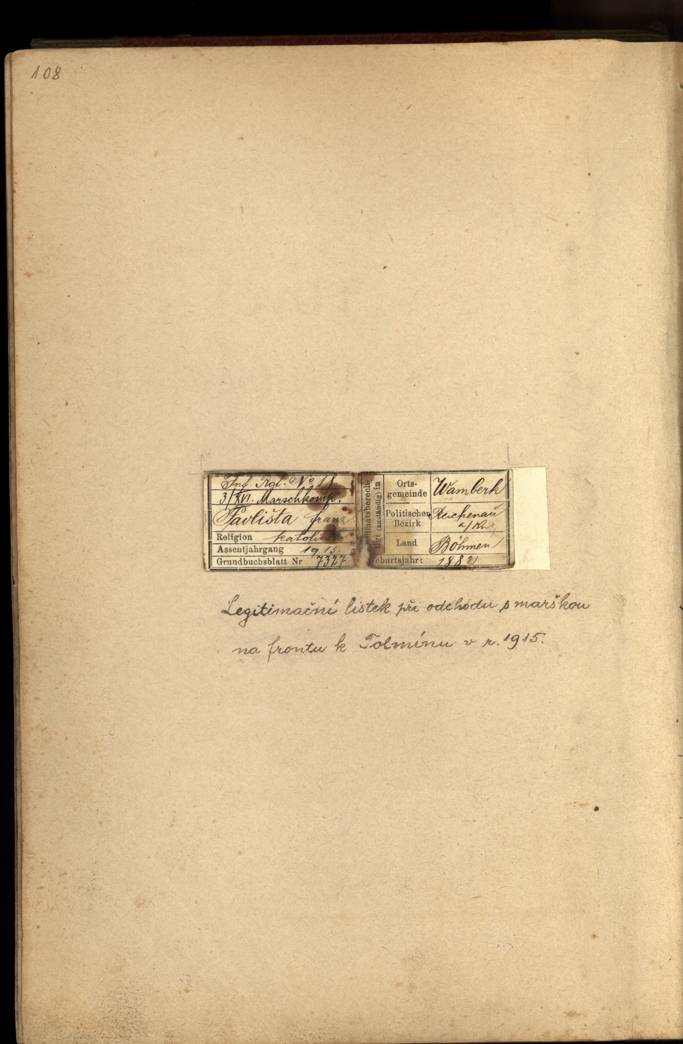 108
Inf. Rgt. No
3/XVI. Marschkomp.
Pavlišta Franz
Religion
Assentjahrgang 1915
Grundbuchsblatt Nr 7327
Orts-
gemeinde Wamberk
Politischer Reichenau
Bezirk a/Kn.
Land Böhmen
Geburtsjahr: 1882
Legitimační lístek při odchodu s marškou
na frontu k Tolmínu v r. 1915.